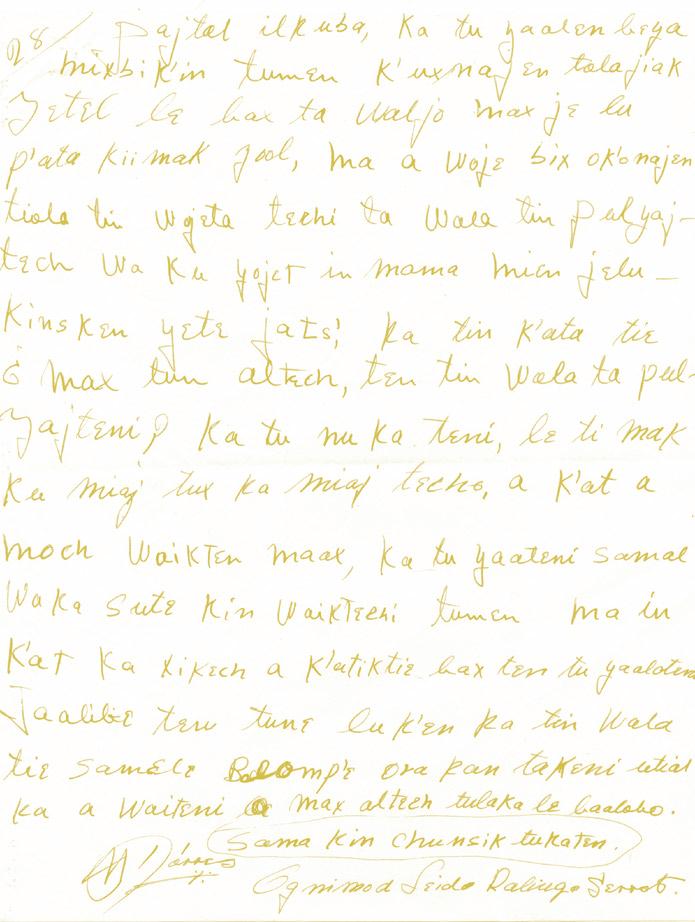 28/ Pajtal ilkuba, Ka tu yaalen beya
mixbik'in tumen K'uxnajen tolajiak
Yetel le bax ta waljo max je lu
p'ata Kiimak jool, ma a woje bix ok'onajen
tiola tin wojeta techi ta Wala tin pulyaj-
tech wa Ku yojet in mama mien jelu-
Kinsken yete jats! Ka tin K'ata tie
¿ max tun altech, ten tin Wala ta pul-
Yajteni? Ka tu nuka teni, le ti mak
Ku miaj tux ka miaj techo, a K'at a
moch WaikTen maax, Ka tu yaateni samal
Waka sute Kin WaikTechi tumen ma in
K'aT Ka xikech a K'atiktie bax ten tu yaaloten
Jaalibe ten tune luk'en ka tin Wala
tie samele ora kan taKeni utial
ka a Waiteni max altech tulaka le baalobo.
Sama Kin chunsik tukaten.
Ognimod Seido Daliugo Serrot.